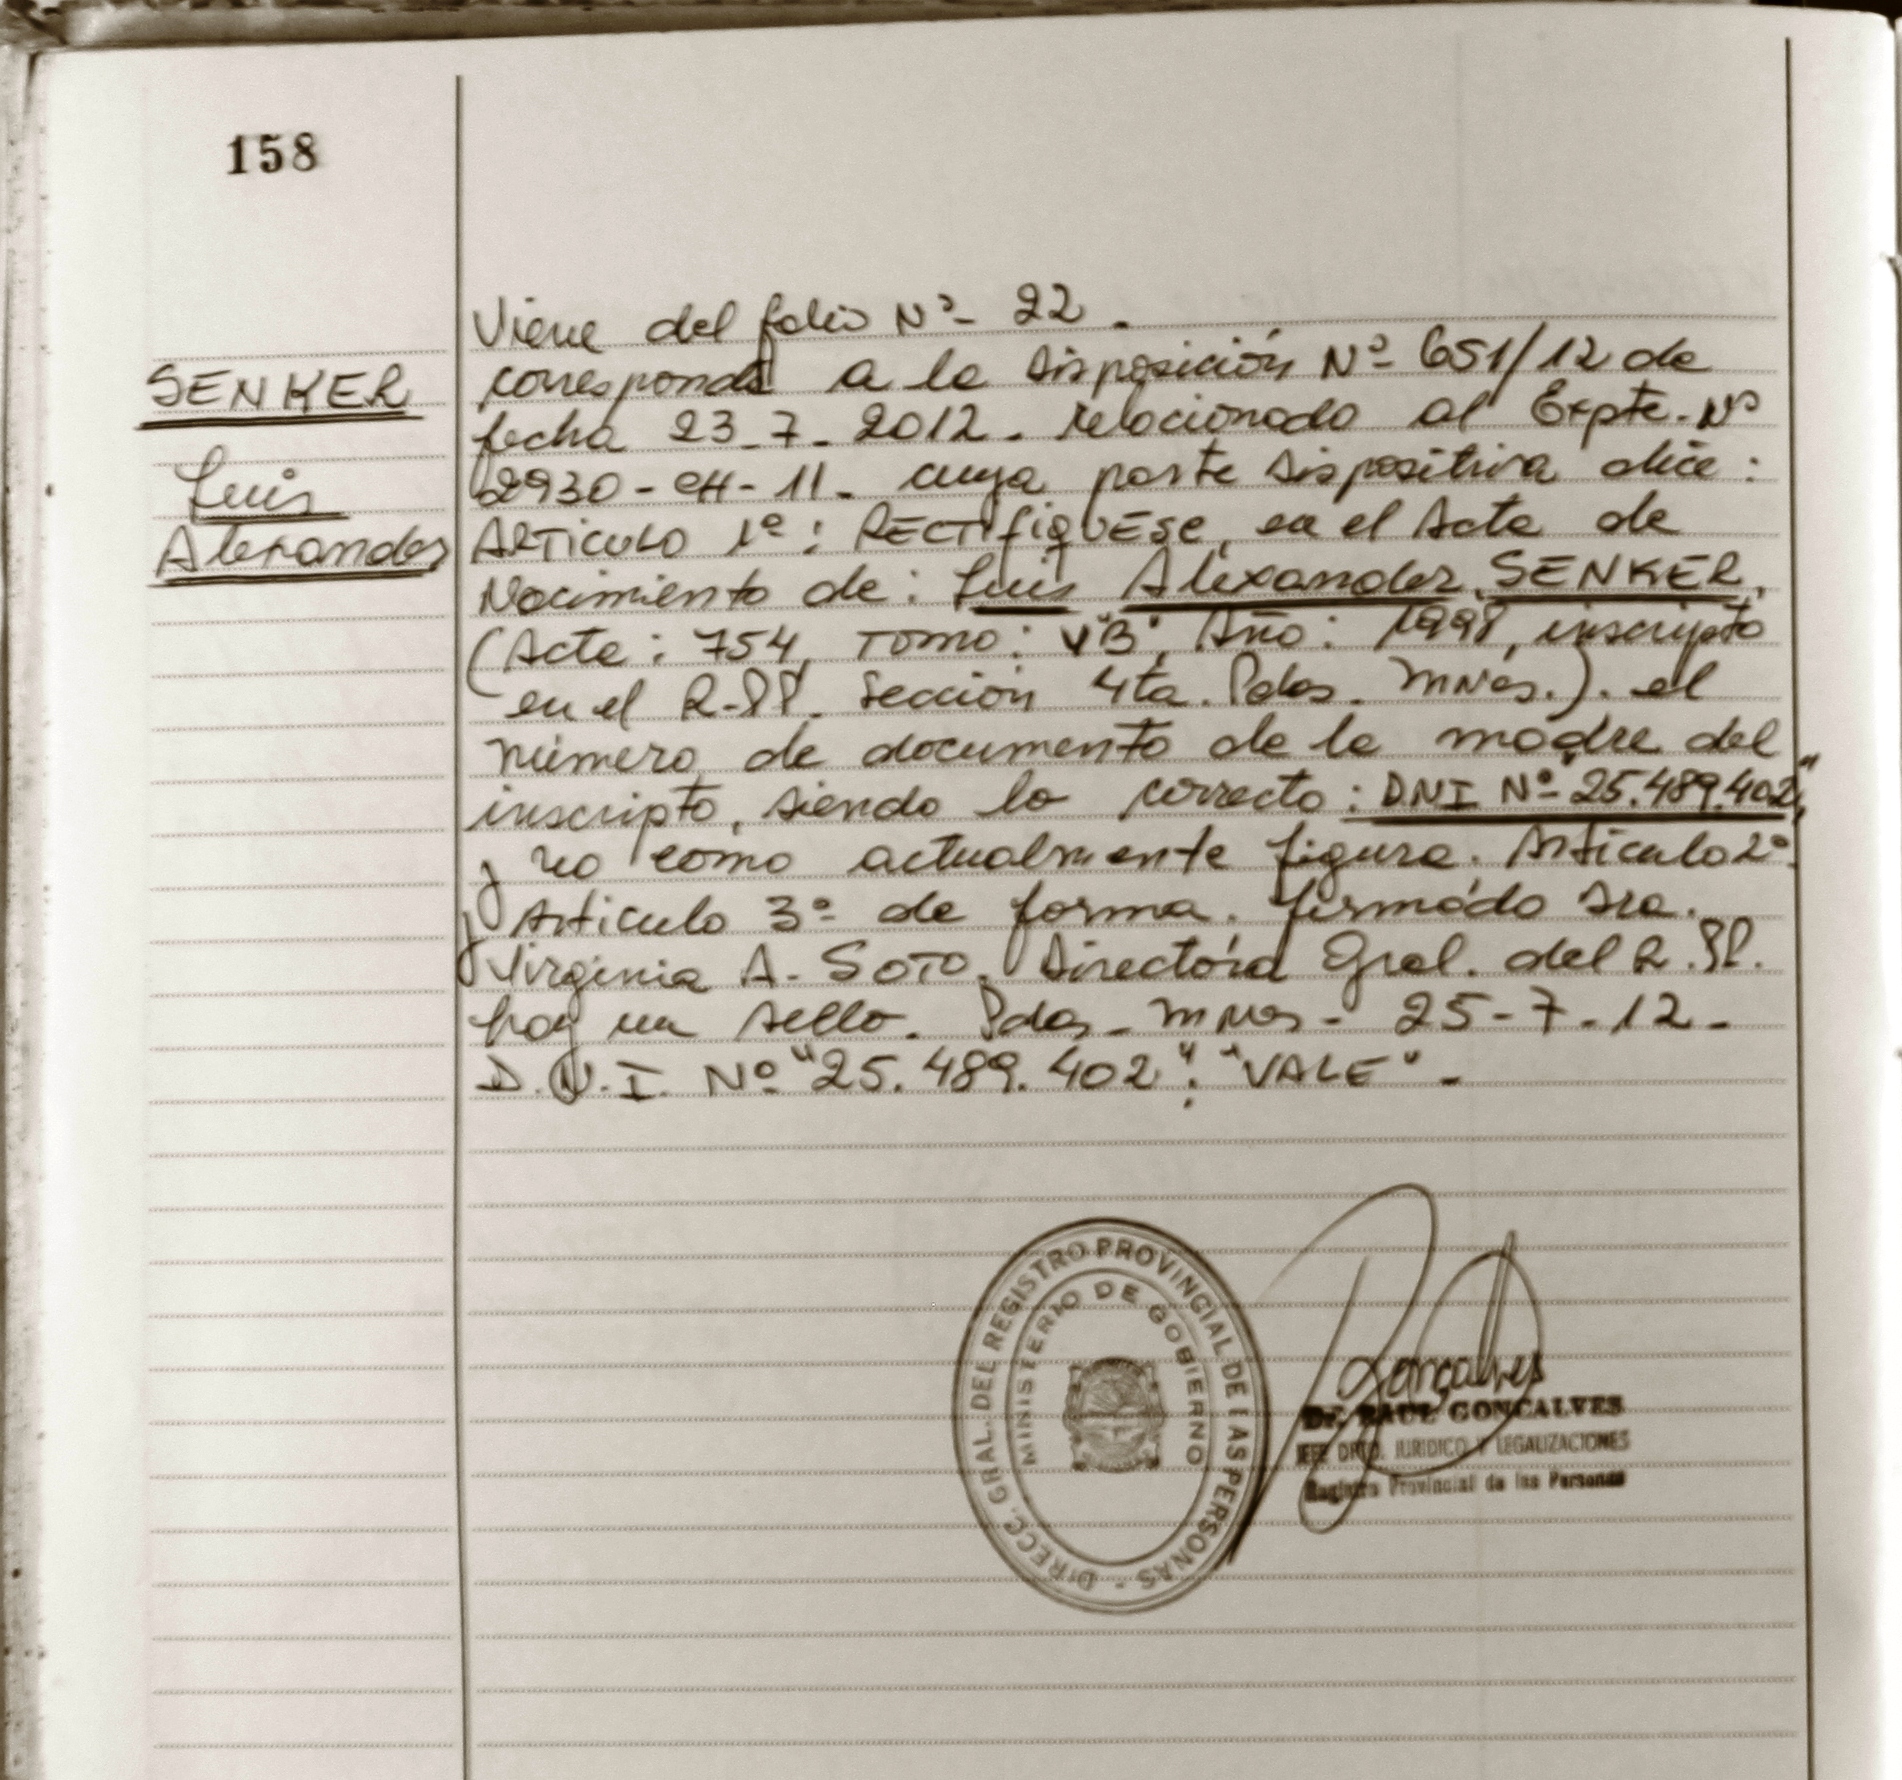 158
SENKER
Luis
Alexander
Viene del folio Nº- 22.
corresponde a la Disposición Nº- 651/12 de
fecha 23-7-2012. relacionado al Expte. Nº
2930- -11. cuya parte dispositiva dice:
ARTICULO 1º: RECTIFIQUESE, en el Acta de
Nacimiento de: Luis Alexander SENKER,
(Acta: 754, TOMO: "B", Año: 1998, inscripto
en el R.P.P. Sección 4ta. Pdas. Mnes.). el
número de documento de la madre del
inscripto, siendo lo correcto: DNI Nº "25.489.402",
y no como actualmente figura. Artículo 2º
y Artículo 3º de forma. firmado Sra.
Virginia A. SOTO. Directora Gral. del R.P.P.
hay un sello. Pdas. Mnes- 25-7-12.
D.N.I. Nº "25.489.402": "VALE".
DIRECC. GRAL. DEL REGISTRO PROVINCIAL DE LAS PERSONAS -
MINISTERIO DE GOBIERNO
Goncalves
Dr. RAUL GONCALVES
JEFE DPTO. JURIDICO Y LEGALIZACIONES
Registro Provincial de las Personas